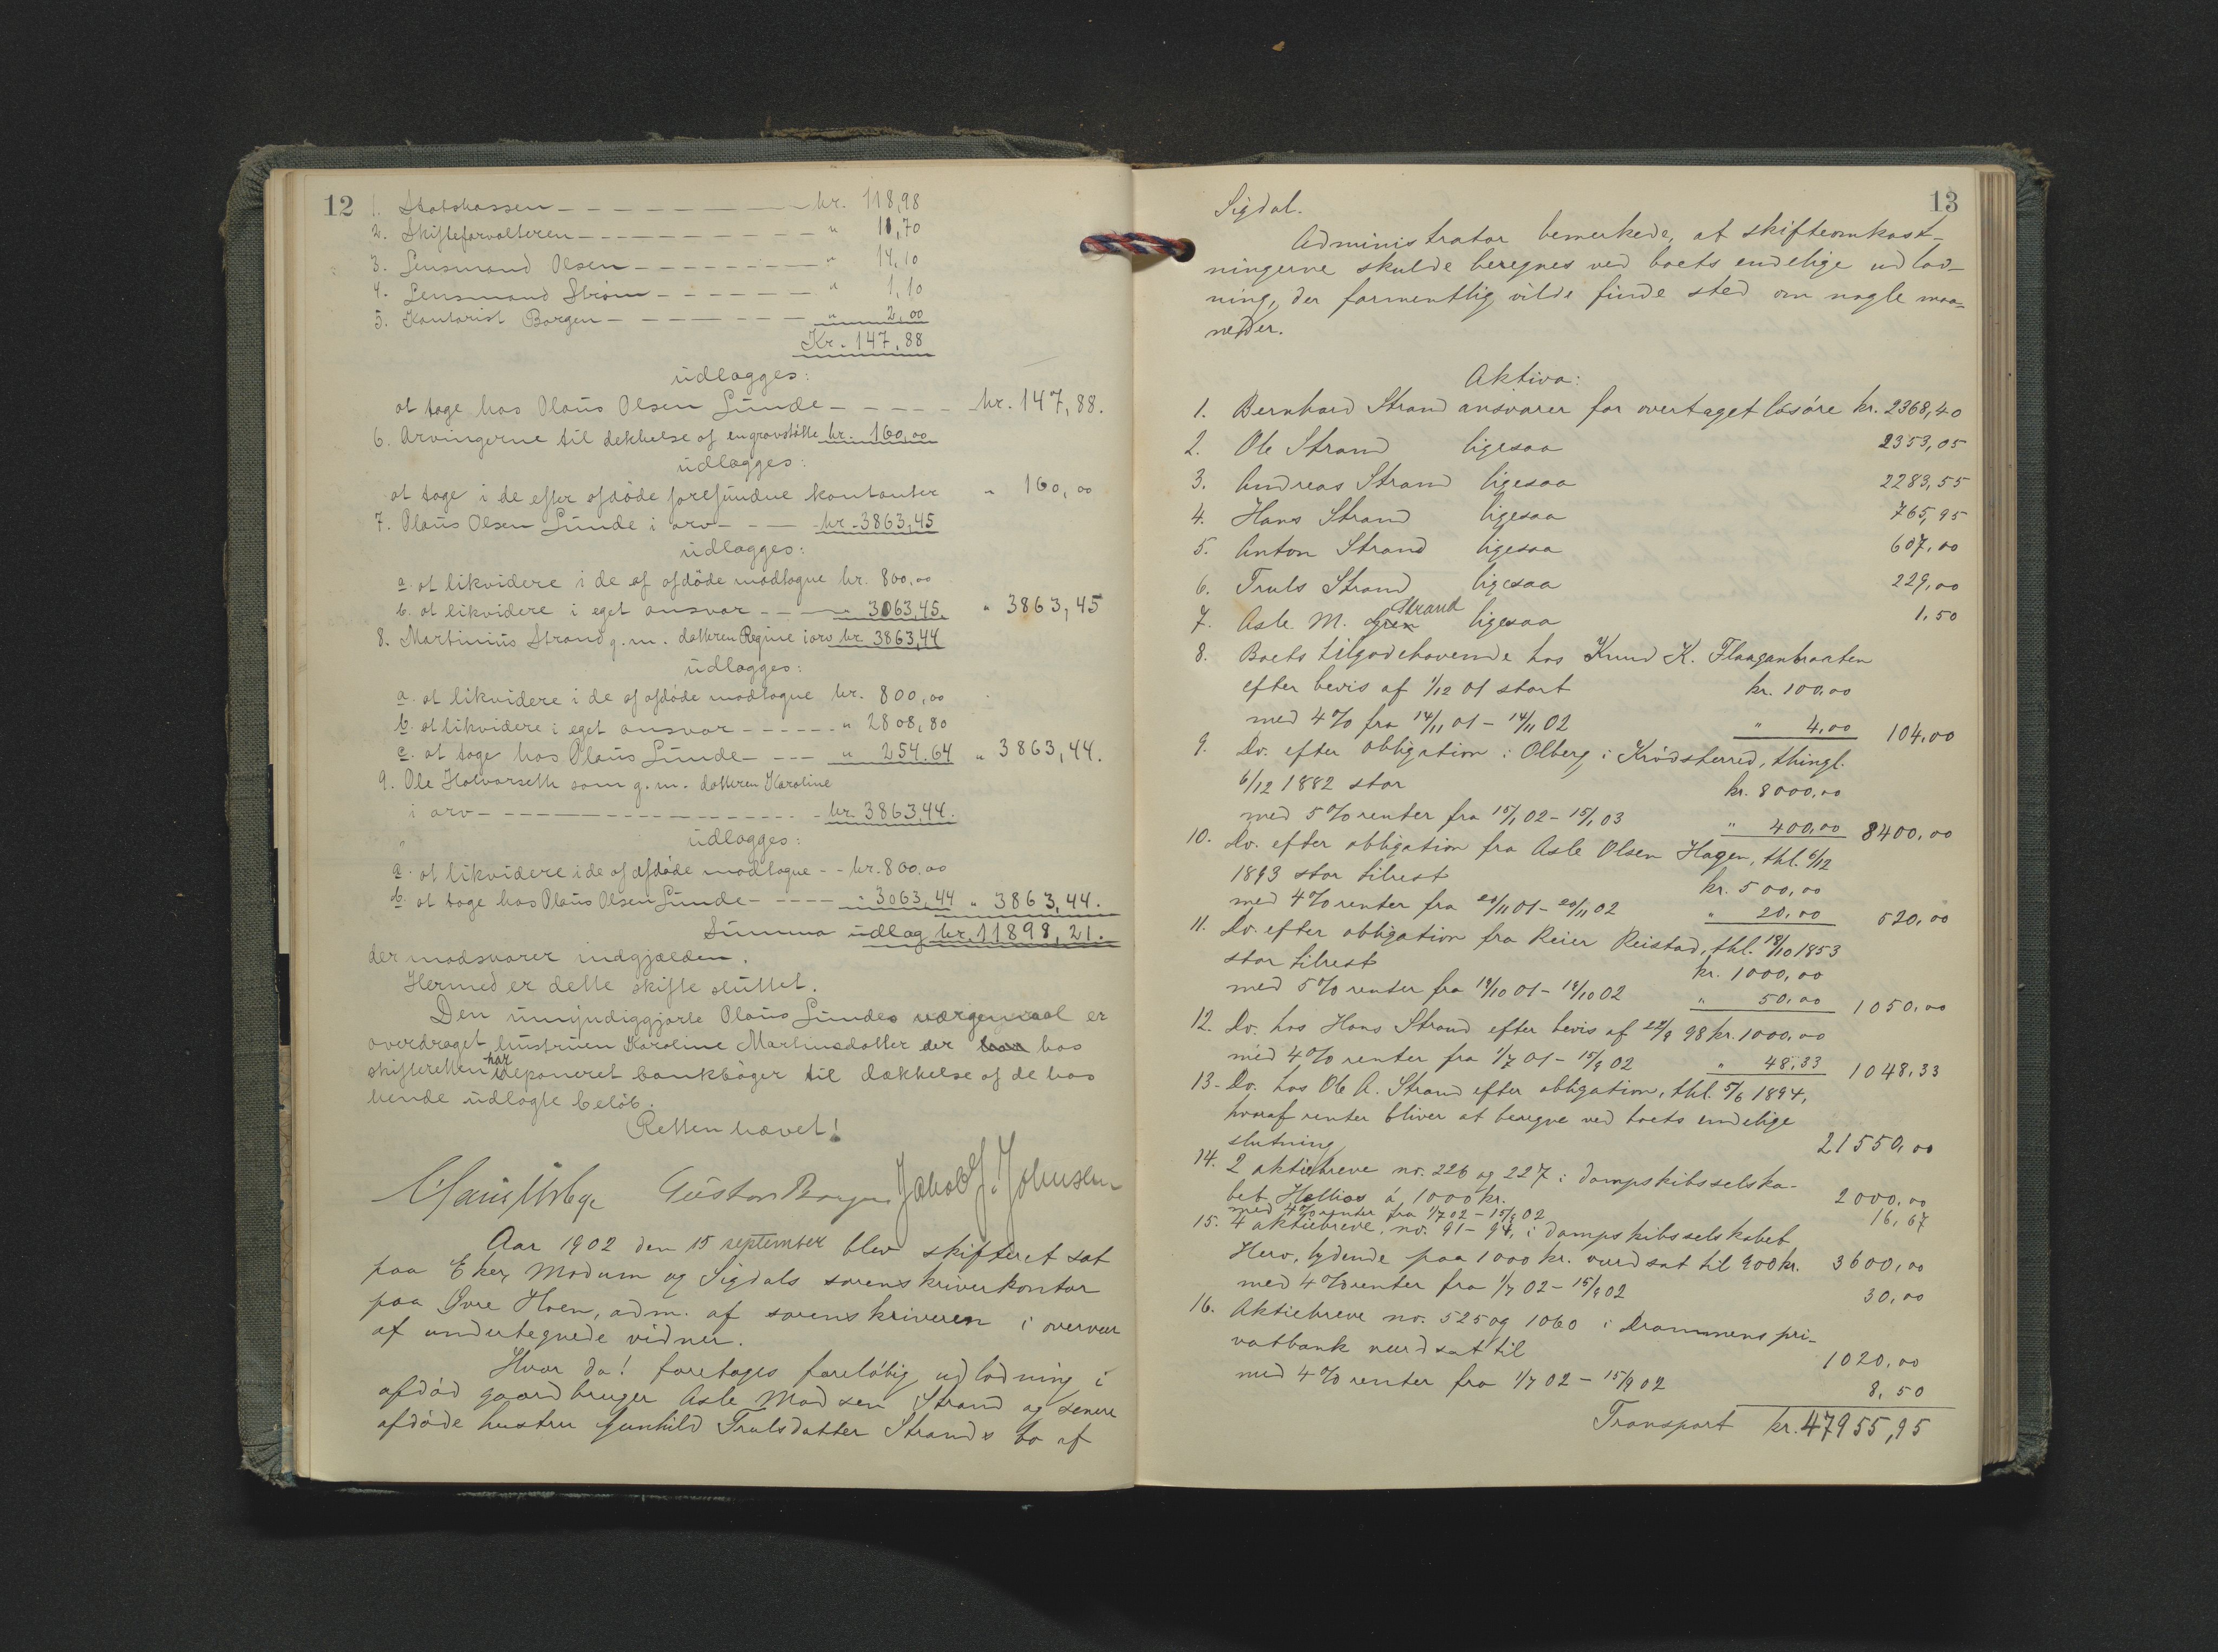 12
1. Statskassen - - - kr. 118,98
2. Skifteforvalteren - - - " 11,70
3. Lensmand Olsen - - - " 14,10
4. Lensmand Strøm - - - " 1,10
5. Kontorist Borgen - - - " 2,00
Kr. 147,88
udlægges:
at tage hos Olaus Olsen Lunde - - - kr. 147,88.
6. Arvingerne til dekkelse af en gravstøtte kr. 160,00
udlægges:
at tage i de efter afdøde forefundne kontanter " 160,00
7. Olaus Olsen Lunde i arv - - - kr. 3863,45
udlægges:
a. at likvidere i de af afdøde modtagne kr. 800,00
b. at likvidere i eget ansvar - - - " 3063,45. " 3863,45
8. Martinius Strand g. m. datteren Regine i arv kr. 3863,44
udlægges:
a. at likvidere i de af afdøde modtagne kr. 800,00
b. at likvidere i eget ansvar - - - " 2808,80
c. at tage hos Olaus Lunde - - - " 254.64 " 3863,44.
9. Ole Halvorseth som g. m. datteren Karoline
i arv - - - kr. 3863,44.
udlægges:
a. at likvidere i de af afdøde modtagne - - kr. 800,00
b. at tage hos Olaus Olsen Lunde - - - " 3063,44 " 3863,44.
Summa udlæg kr. 11898,21.
der modsvarer indgjælden.
Hermed er dette skifte sluttet.
Den umyndiggjorte Olaus Lundes værgemaal er
overdraget hustruen Karoline Martinsdatter der hos
skifteretten har deponeret bankbøger til dækkelse af de hos
hende udlagte beløb.
Retten hævet!
Gustav Borgen Jakob J. Johnsen
Aar 1902 den 15 september blev skifteret sat
paa Eker, Modum og Sigdals sorenskriverkontor
paa Øvre Hoen, adm. af sorenskriveren i overvær
af undertegnede vidner.
Hvor da! foretages foreløbig udlodning i
afdød gaardbruger Asle Madsen Strand og senere
afdøde hustru Gunhild Trulsdatter Strands bo af
13
Sigdal.
Administrator bemerkede, at skifteomkost-
ningerne skulde beregnes ved boets endelige udlod-
ning, der formentlig vilde finde sted om nogle maa-
neder.
Aktiva:
1. Bernhard Strand ansvarer for overtaget løsøre kr. 2368,40
2. Ole Strand ligesaa 2353,05
3. Andreas Strand ligesaa 2283,55
4. Hans Strand ligesaa 765,95
5. Anton Strand ligesaa 607,00
6. Truls Strand ligesaa 229,00
7. Asle M. Strand ligesaa 1.50
8. Boets tilgodehavende hos Knud K. Flaaganbraaten
efter bevis af 1/12 01 stort kr. 100,00
med 4 % fra 14/11 01 - 14/11 02 " 4,00 104,00
9. Do. efter obligation i Olberg i Krødsherred, thingl.
6/12 1882 stor kr. 8000,00
med 5 % renter fra 15/1 02 - 15/1 03 " 400,00 8400,00
10. Do. efter obligation fra Asle Olsen Hagen, thl. 6/12
1893 stor tilrest kr. 500,00
med 4 % renter fra 20/11 01 - 20/11 02 " 20,00 520,00
11. Do. efter obligation fra Reier Reistad, thl. 18/10 1853
stor tilrest kr. 1000,00
med 5 % renter fra 19/10 01 - 19/10 02 " 50,00 1050,00
12. Do. hos Hans Strand efter bevis af 22/9 98 kr. 1000,00
med 4 % renter fra 1/7 01 - 15/9 02 " 48,33 1048,33
13. Do. hos Ole A. Strand efter obligation, thl. 5/6 1894,
hvoraf renter bliver at beregne ved boets endelige
slutning 21550,00
14. 2 aktiebreve no. 226 og 227 i dampskibsselska-
bet Hellios á 1000 kr. 2000,00
med 4 % renter fra 1/7 02 - 15/9 02 16,67
15. 4 aktiebreve, no. 91 - 94, i dampskibsselskabet
Hero, lydende paa 1000 kr. vurdsat til 900 kr. 3600,00
med 4 % renter fra 1/7 02 - 15/9 02 30,00
16. Aktiebreve no. 525 og 1060 i Drammens pri-
vatbank vurdsat til 1020,00
med 4 % renter fra 1/7 02 - 15/9 02 8,50
Transport kr. 47955,95